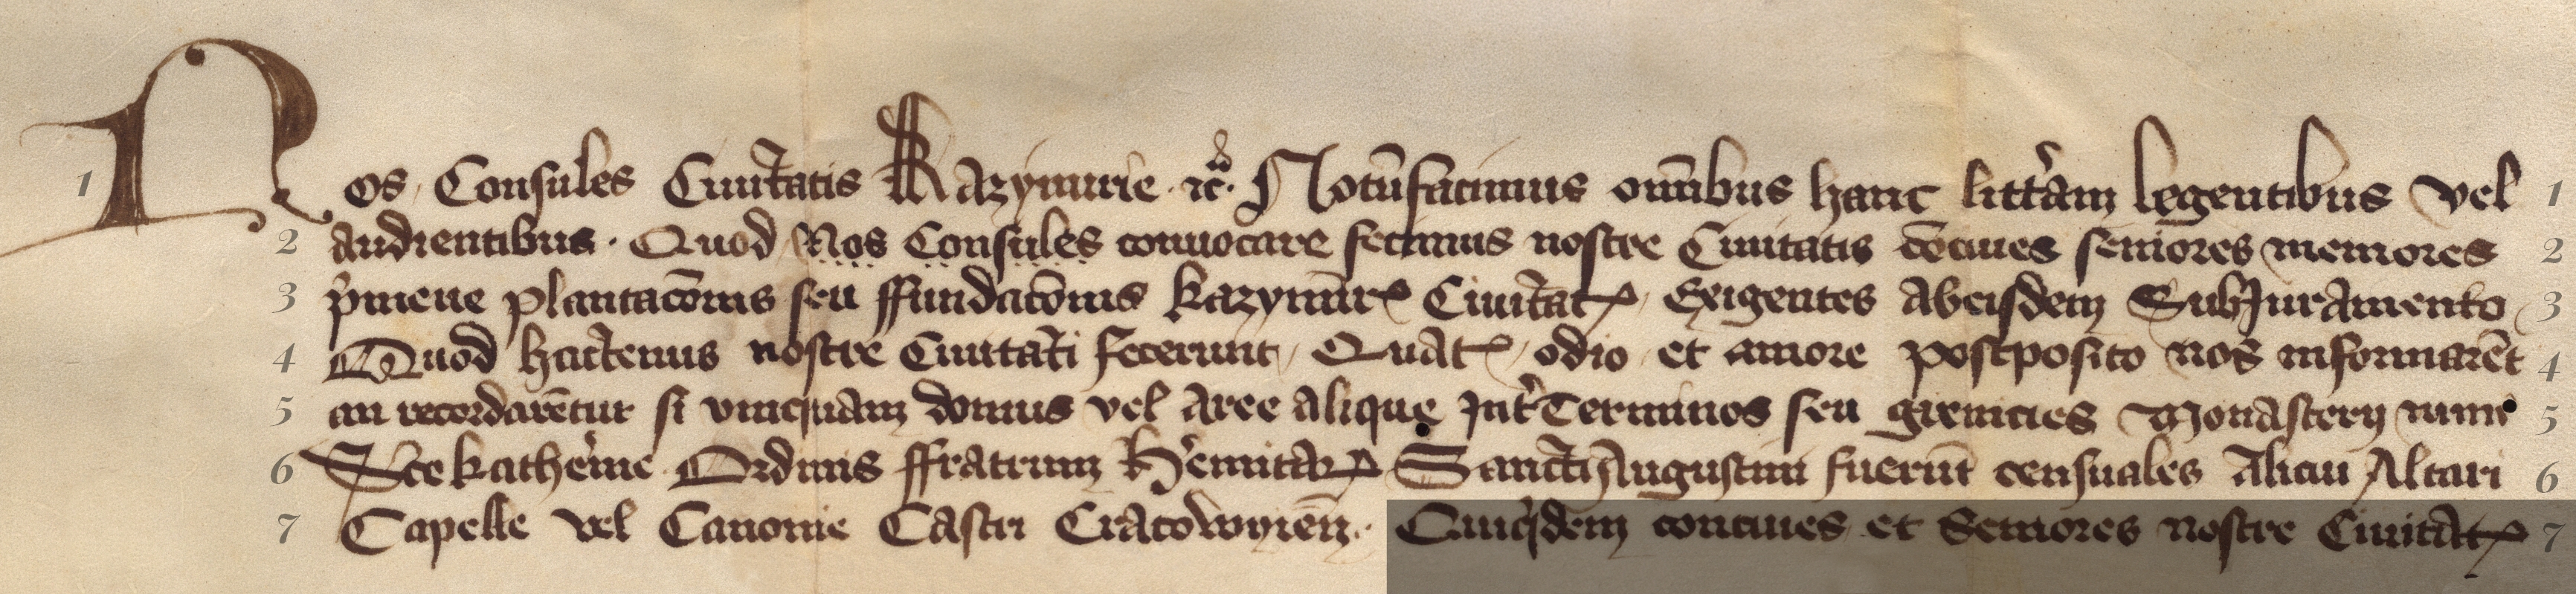 Nos Consules Ciuitatis Kazymirie · ꝛc̄· Notūfacimus om̄ibus hanc litt̄am legentibus vel
audientibus · Quod Nos Consules conuocare fecimus nostre Ciuitatis cōciues seniores memores
p̄meue plantacōnis seu ffundacōnis kazymir̄ Ciuitat̄ Exigentes Abeisdem SubJuramento
Quod hactenus nostre Ciuitati fecerunt, Quat̄ odio et amore postposito nos informarēt
an recordarētur si vmquam domus vel Aree alique Int̄Terminos seu grenicies Monasterij
Sce kather̄ine Ordinis ffratrum H̄emitar̄ Sancti Augustini fuerūt censuales Alicui Altari
Capelle vel Canonie Castri Cracowyēn̄. Quiq̄dem conciues et Seniores nostre Ciuitat̄